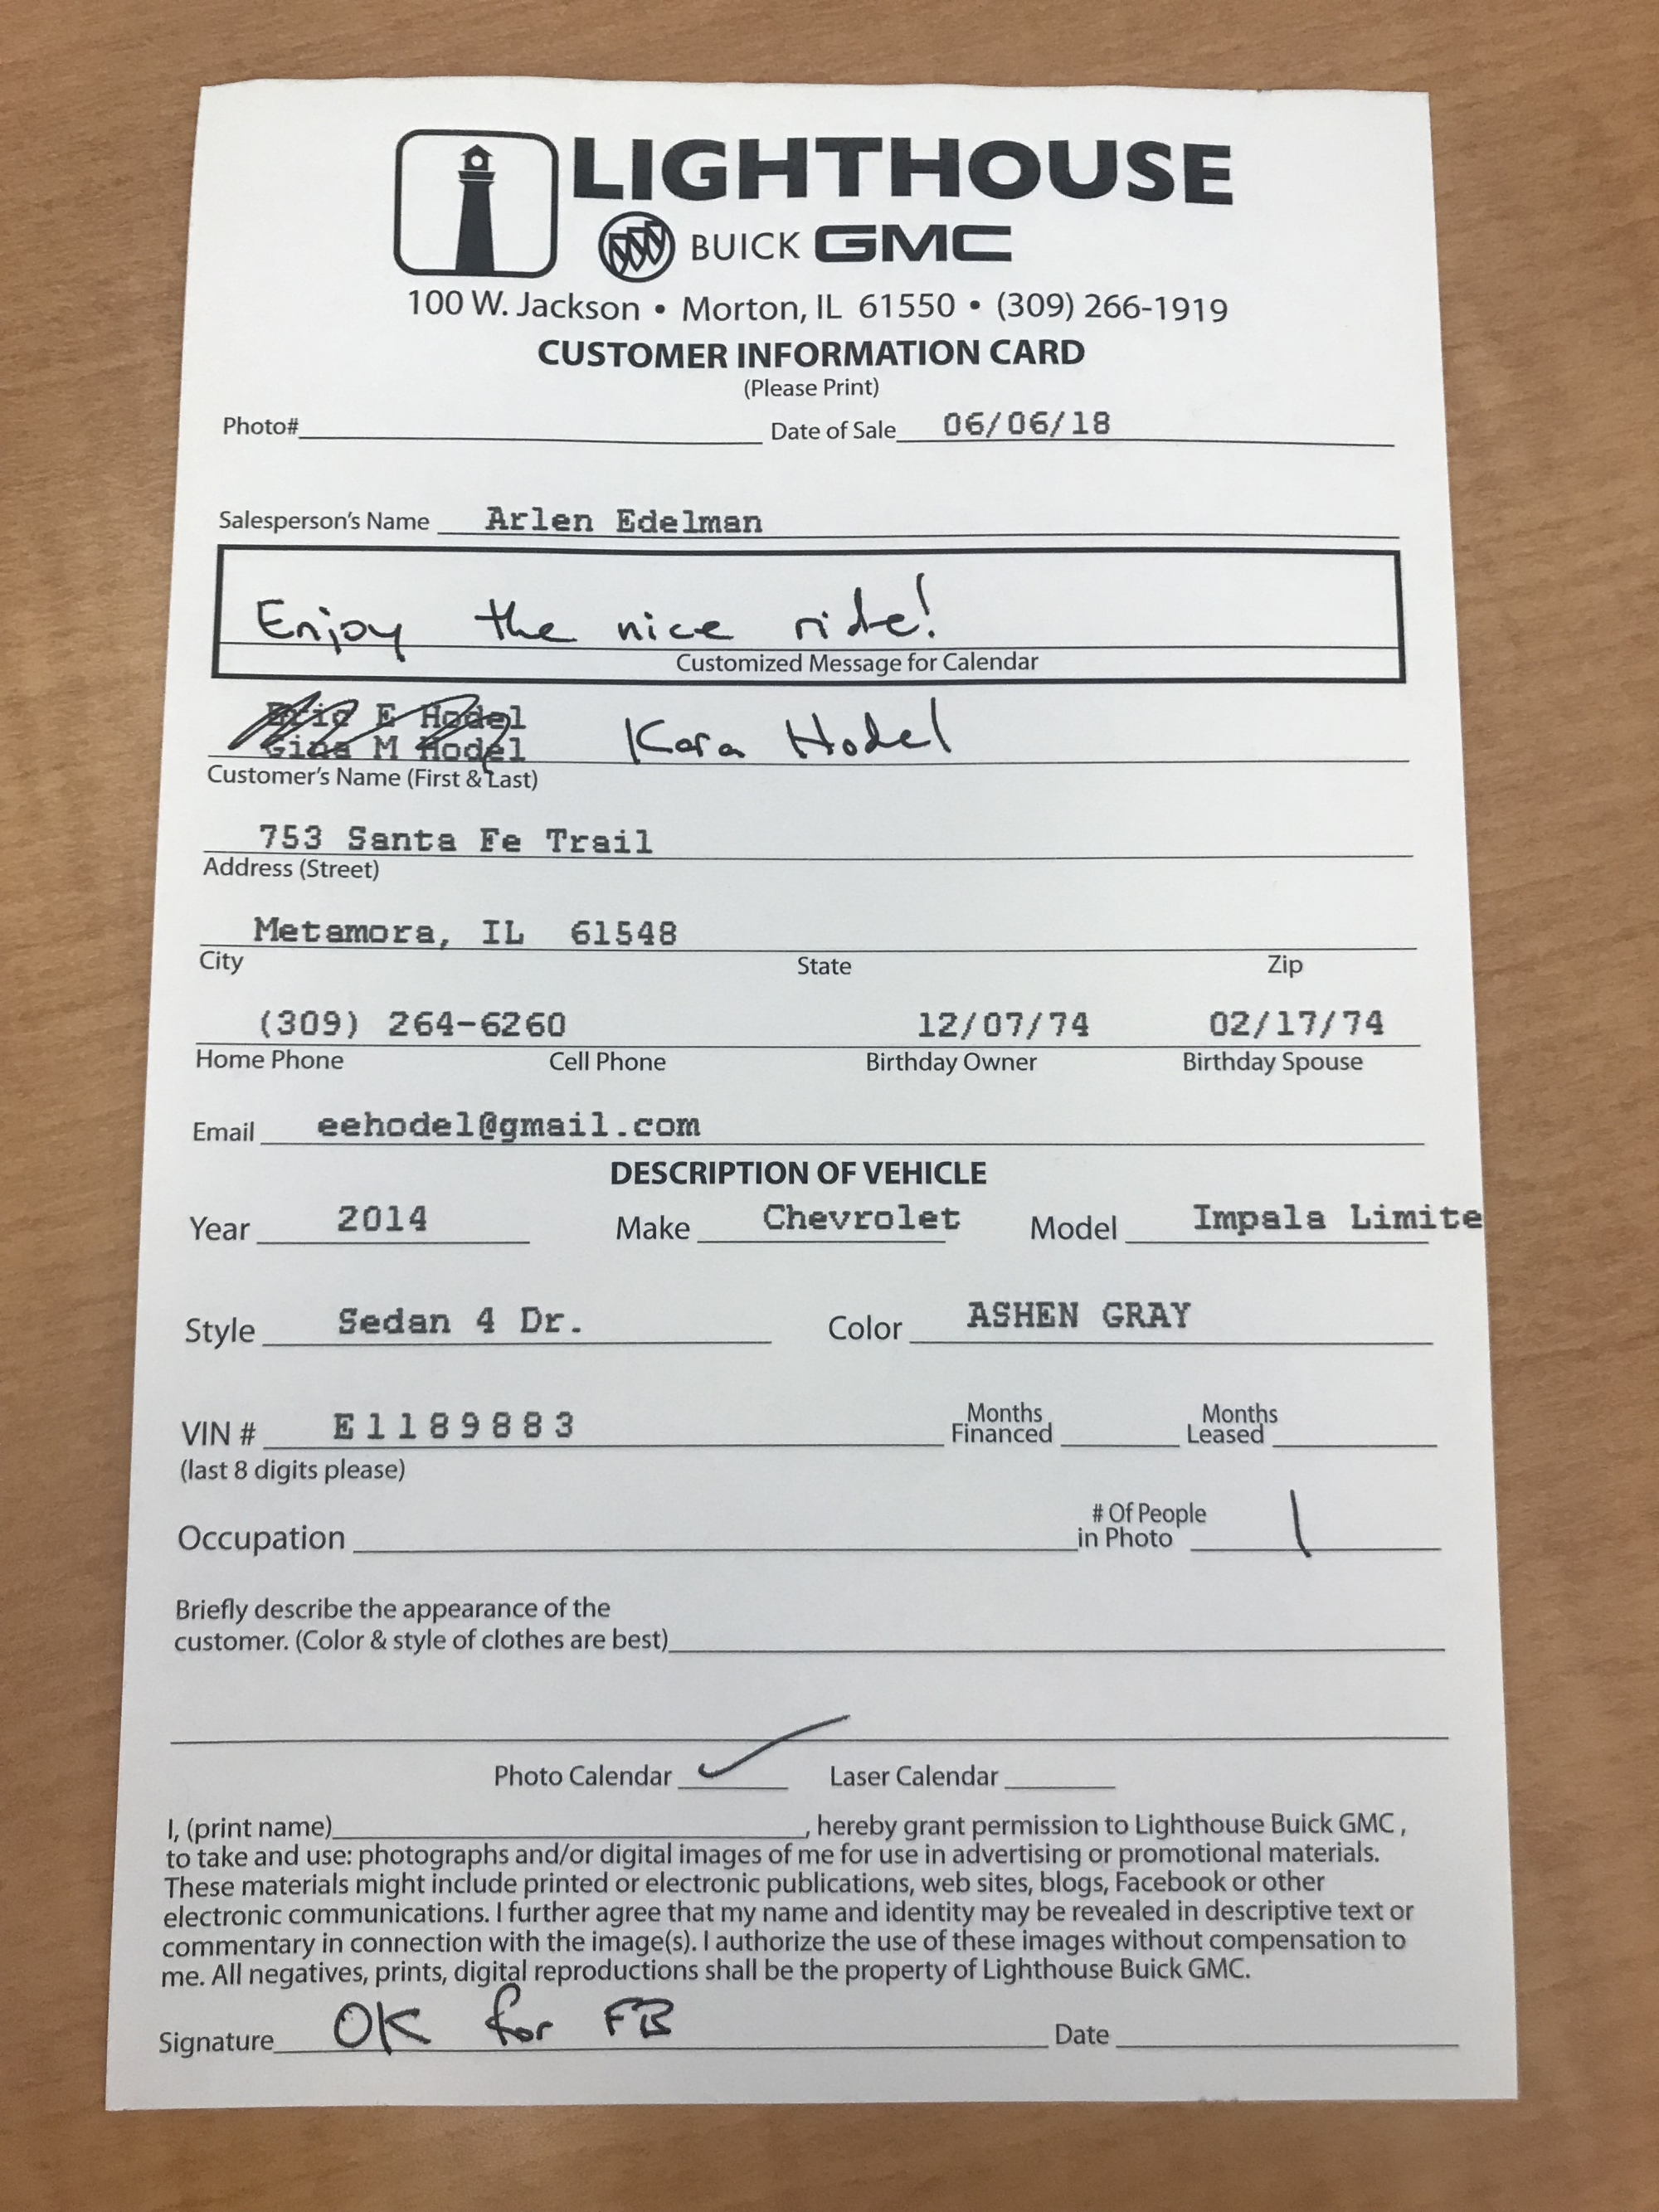 LIGHTHOUSE
BUICK GMC
100 W. Jackson • Morton, IL 61550 • (309) 266-1919
CUSTOMER INFORMATION CARD
(Please Print)
Photo# Date of Sale 06/06/18
Salesperson's Name Arlen Edelman
Enjoy the nice ride!
Customized Message for Calendar
Eric E Hodel
Gina M Hodel Kara Hodel
Customer's Name (First & Last)
753 Santa Fe Trail
Address (Street)
Metamora, IL 61548
City State Zip
(309) 264-6260 12/07/74 02/17/74
Home Phone Cell Phone Birthday Owner Birthday Spouse
Email eehodel@gmail.com
DESCRIPTION OF VEHICLE
Year 2014 Make Chevrolet Model Impala Limite
Style Sedan 4 Dr. Color ASHEN GRAY
VIN # E1189883 Months Financed Months Leased
(last 8 digits please)
Occupation # Of People in Photo 1
Briefly describe the appearance of the
customer. (Color & style of clothes are best)
Photo Calendar ✓ Laser Calendar
I, (print name) , hereby grant permission to Lighthouse Buick GMC,
to take and use: photographs and/or digital images of me for use in advertising or promotional materials.
These materials might include printed or electronic publications, web sites, blogs, Facebook or other
electronic communications. I further agree that my name and identity may be revealed in descriptive text or
commentary in connection with the image(s). I authorize the use of these images without compensation to
me. All negatives, prints, digital reproductions shall be the property of Lighthouse Buick GMC.
Signature OK for FB Date